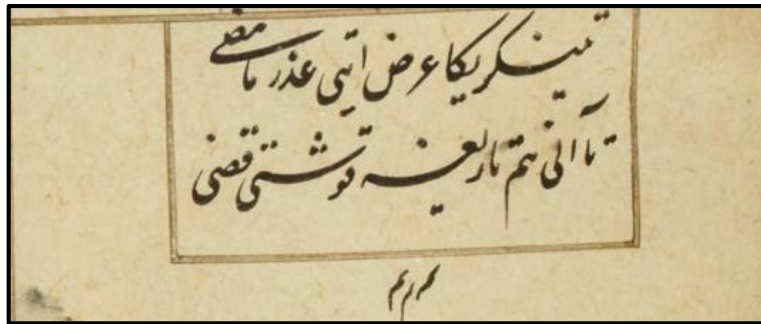 تینکریکا عرض ایتی عذر مامضی
تا آنی هم یاریغه قوشتی قضی